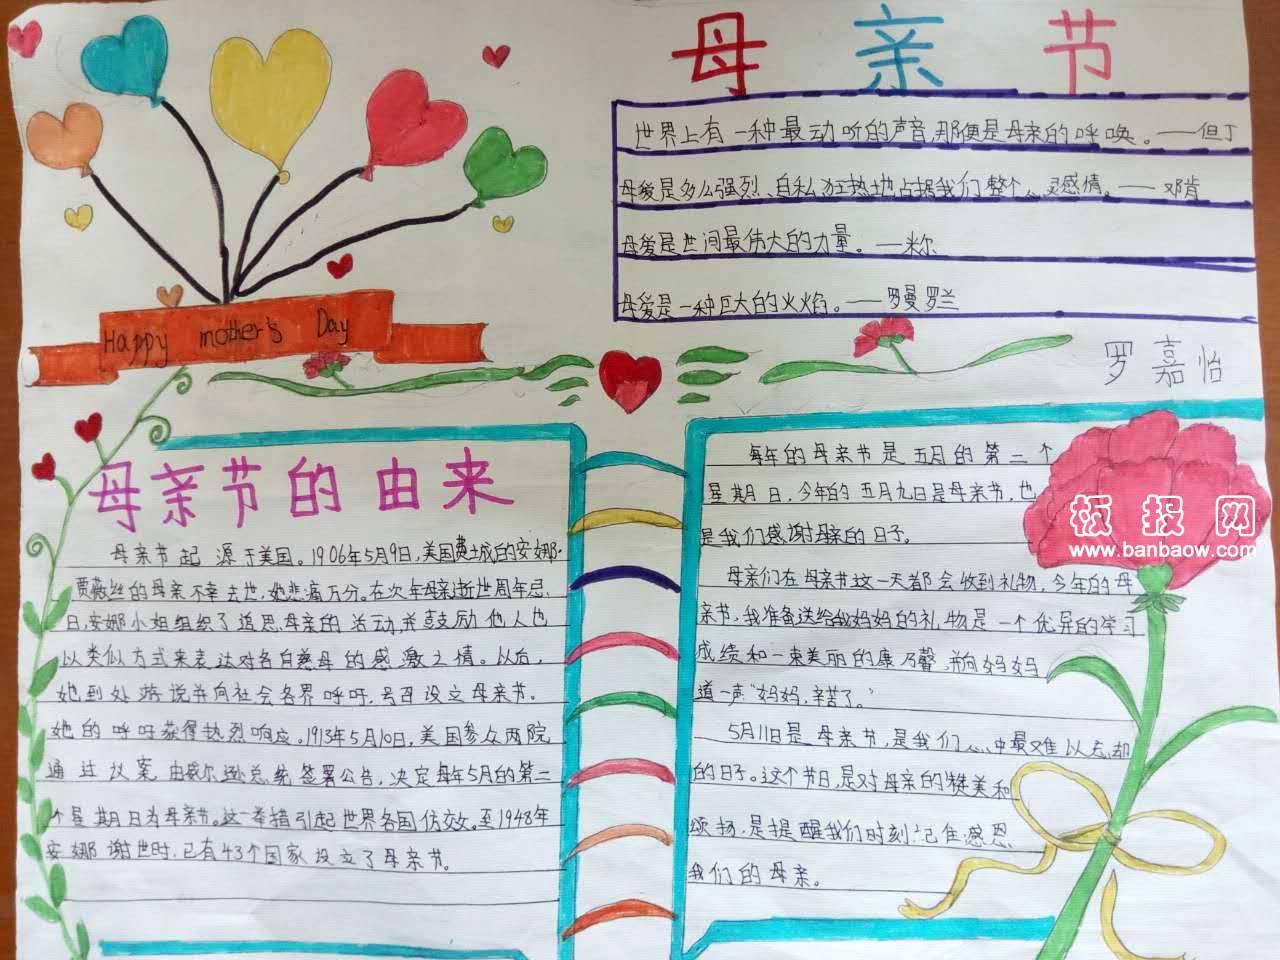 母亲节
世界上有一种最动听的声音,那便是母亲的呼唤。——但丁
母爱是多么强烈、自私、狂热地占据我们整个心灵感情。——邓肯
母爱是世间最伟大的力量。——米尔
母爱是一种巨大的火焰。——罗曼罗兰
Happy mother's Day
罗嘉怡
母亲节的由来
母亲节起源于美国。1906年5月9日,美国费城的安娜·
贾薇丝的母亲不幸去世,她悲痛万分。在次年母亲逝世周年忌
日,安娜小姐组织了追思母亲的活动,并鼓励他人也
以类似方式来表达对各自慈母的感激之情。以后,
她到处游说并向社会各界呼吁,号召设立母亲节。
她的呼吁获得热烈响应。1913年5月10日,美国参众两院
通过议案,由威尔逊总统签署公告,决定每年5月的第二
个星期日为母亲节。这一举措引起世界各国仿效。至1948年
安娜谢世时,已有43个国家设立了母亲节。
每年的母亲节是五月的第二个
星期日,今年的五月九日是母亲节,也
是我们感谢母亲的日子。
母亲们在母亲节这一天都会收到礼物,今年的母
亲节,我准备送给我妈妈的礼物是一个优异的学习
成绩和一束美丽的康乃馨,并向妈妈
道一声“妈妈,辛苦了。”
5月11日是母亲节,是我们心中最难以忘却
的日子。这个节日,是对母亲的赞美和
颂扬,是提醒我们时刻记住感恩
我们的母亲。
板报网
www.banbaow.com